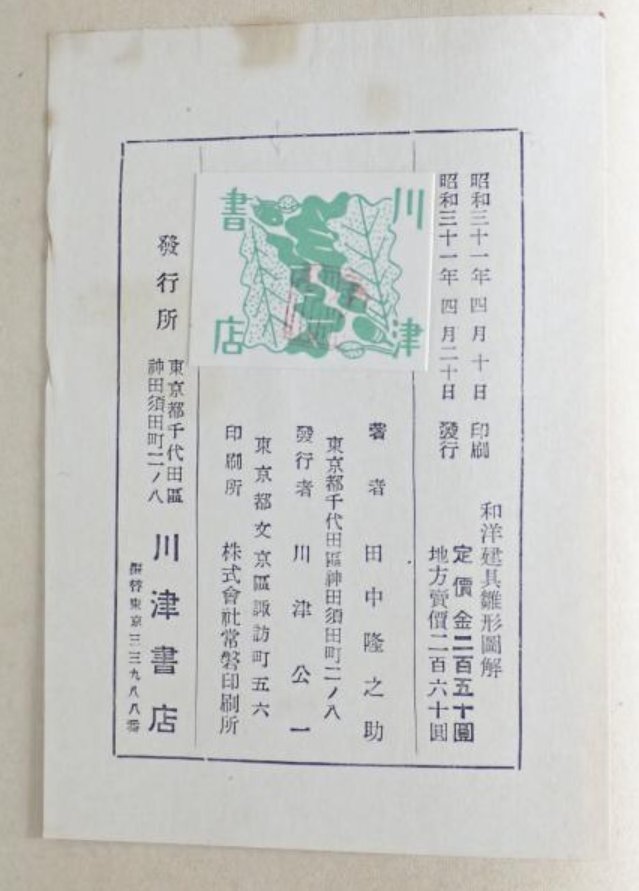 昭和三十一年四月十日 印刷
昭和三十一年四月二十日 發行
和洋建具雛形圖解
定價金二百五十圓
地方賣價二百六十圓
川津書店
著者 田中隆之助
東京都千代田區神田須田町二ノ八
發行者 川津公一
東京都文京區諏訪町五六
印刷所 株式會社常磐印刷所
發行所
東京都千代田區
神田須田町二ノ八
川津書店
振替東京三三九八八番